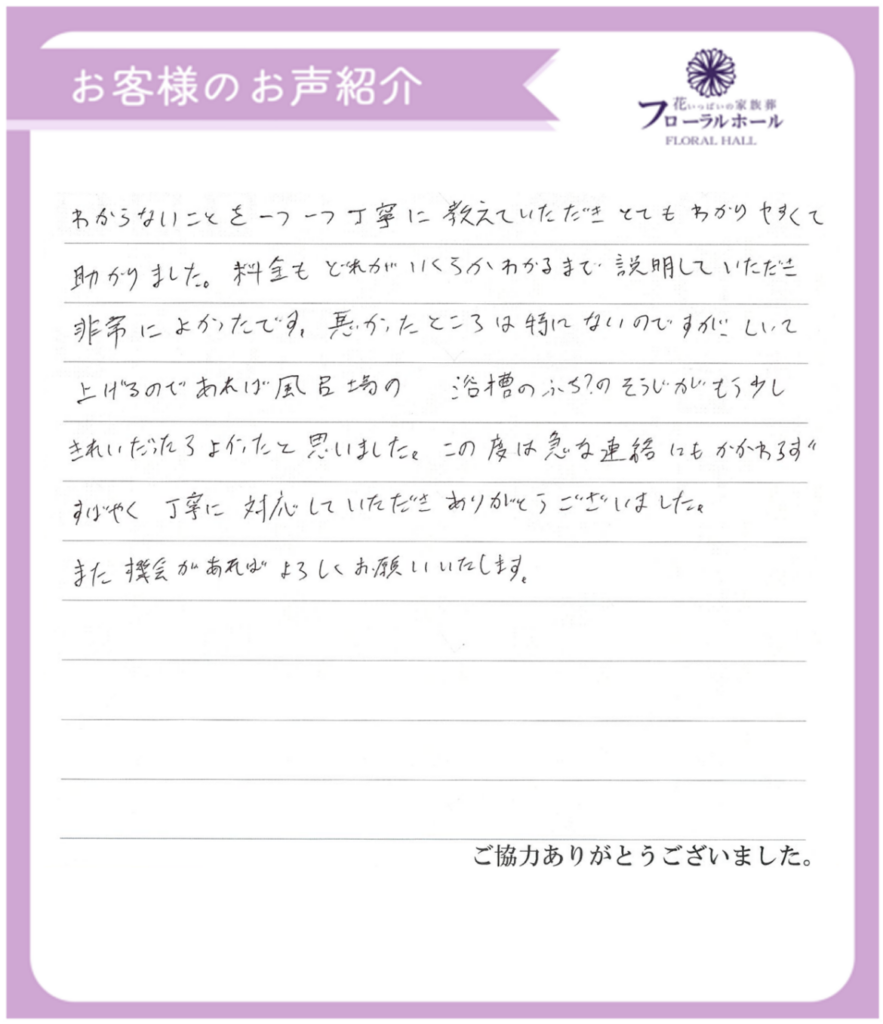 お客様のお声紹介
花いっぱいの家族葬
フローラルホール
FLORAL HALL
わからないことを一つ一つ丁寧に教えていただきとてもわかりやすくて
助かりました。料金もどれがいくらかわかるまで説明していただき
非常によかったです。悪かったところは特にないのですが、しいて
上げるのであれば風呂場の 浴槽のふち?のそうじがもう少し
きれいだったらよかったと思いました。この度は急な連絡にもかかわらず
すばやく 丁寧に対応していただきありがとうございました。
また機会があればよろしくお願いいたします。
ご協力ありがとうございました。